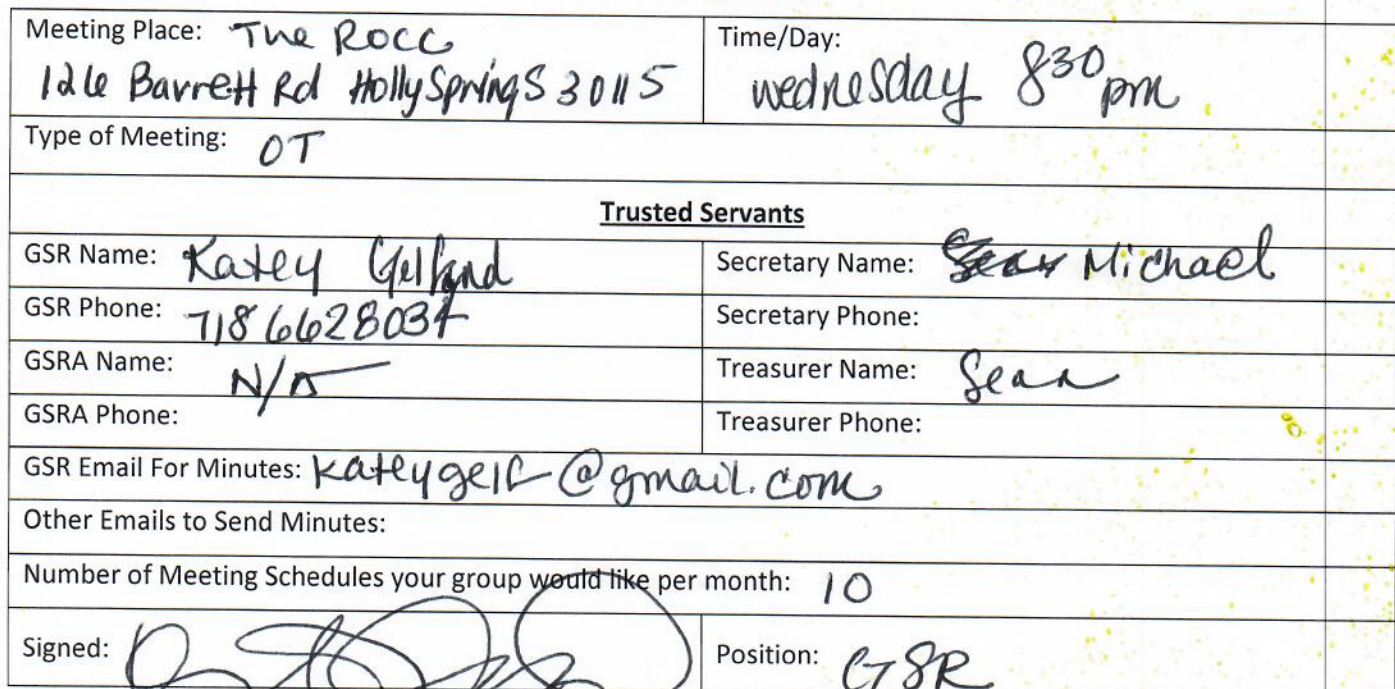 Meeting Place: The ROCC
126 Barrett Rd Holly Springs 30115
Time/Day:
wednesday 8 30 pm
Type of Meeting: OT
Trusted Servants
GSR Name: Katey Gelfand
Secretary Name: Michael
GSR Phone: 7186628034
Secretary Phone:
GSRA Name: N/A
Treasurer Name: Sean
GSRA Phone:
Treasurer Phone:
GSR Email For Minutes: kateygelf@gmail.com
Other Emails to Send Minutes:
Number of Meeting Schedules your group would like per month: 10
Signed:
Position: GSR